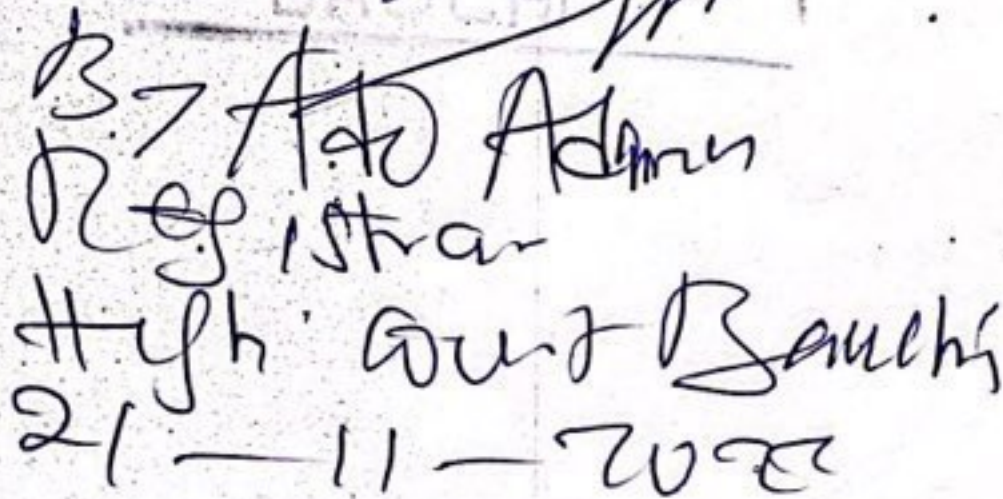 B. Z. Ado Admin
Registrar
High Court Bauchi
21-11-2022